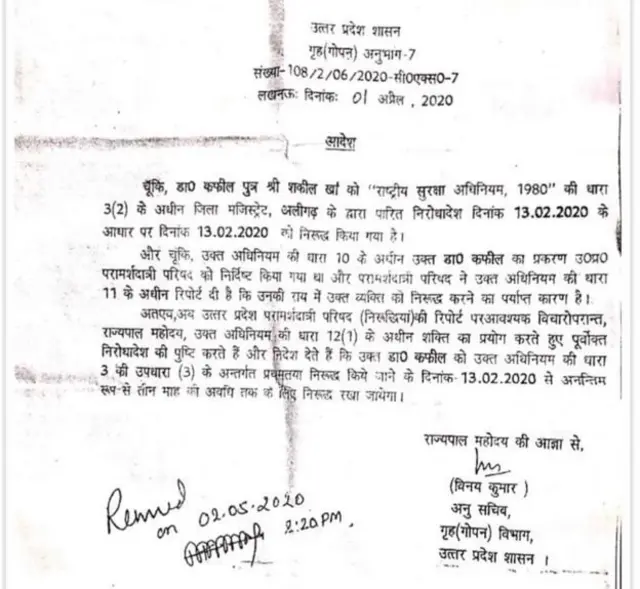 उत्तर प्रदेश शासन
गृह(गोपन) अनुभाग-7
संख्या-108/2/06/2020-सी0एक्स0-7
लखनऊः दिनांकः 01 अप्रैल, 2020
आदेश
चूंकि, डा0 कफील पुत्र श्री शकील खां को "राष्ट्रीय सुरक्षा अधिनियम, 1980" की धारा
3(2) के अधीन जिला मजिस्ट्रेट, अलीगढ़ के द्वारा पारित निरोधादेश दिनांक 13.02.2020 के
आधार पर दिनांक 13.02.2020 को निरूद्ध किया गया है।
और चूंकि, उक्त अधिनियम की धारा 10 के अधीन उक्त डा0 कफील का प्रकरण उ0प्र0
परामर्शदात्री परिषद को निर्दिष्ट किया गया था और परामर्शदात्री परिषद ने उक्त अधिनियम की धारा
11 के अधीन रिपोर्ट दी है कि उनकी राय में उक्त व्यक्ति को निरूद्ध करने का पर्याप्त कारण है।
अतएव,अब उत्तर प्रदेश परामर्शदात्री परिषद (निरूद्धियां)की रिपोर्ट परआवश्यक विचारोपरान्त,
राज्यपाल महोदय, उक्त अधिनियम की धारा 12(1) के अधीन शक्ति का प्रयोग करते हुए पूर्वोक्त
निरोधादेश की पुष्टि करते हैं और निदेश देते हैं कि उक्त डा0 कफील को उक्त अधिनियम की धारा
3 की उपधारा (3) के अन्तर्गत प्रथमतया निरूद्ध किये जाने के दिनांक-13.02.2020 से अनन्तिम
रूप-से तीन माह की अवधि तक के लिए निरूद्ध रखा जायेगा।
राज्यपाल महोदय की आज्ञा से,
(विनय कुमार)
अनु सचिव,
गृह(गोपन) विभाग,
उत्तर प्रदेश शासन।
on 02.05.2020
2:20PM.